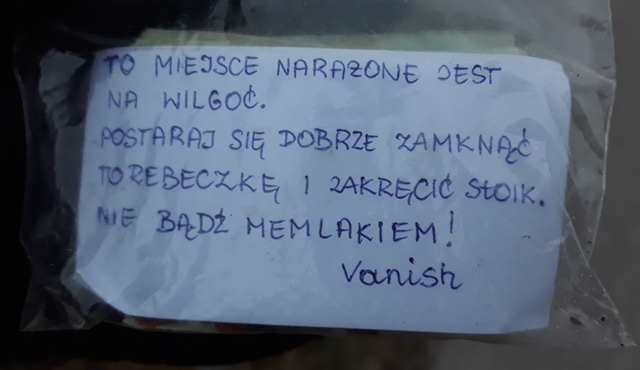 TO MIEJSCE NARAŻONE JEST
NA WILGOĆ.
POSTARAJ SIĘ DOBRZE ZAMKNĄĆ
TOREBECZKĘ I ZAKRĘCIĆ SŁOIK.
NIE BĄDŹ MEMLAKIEM!
Vanish